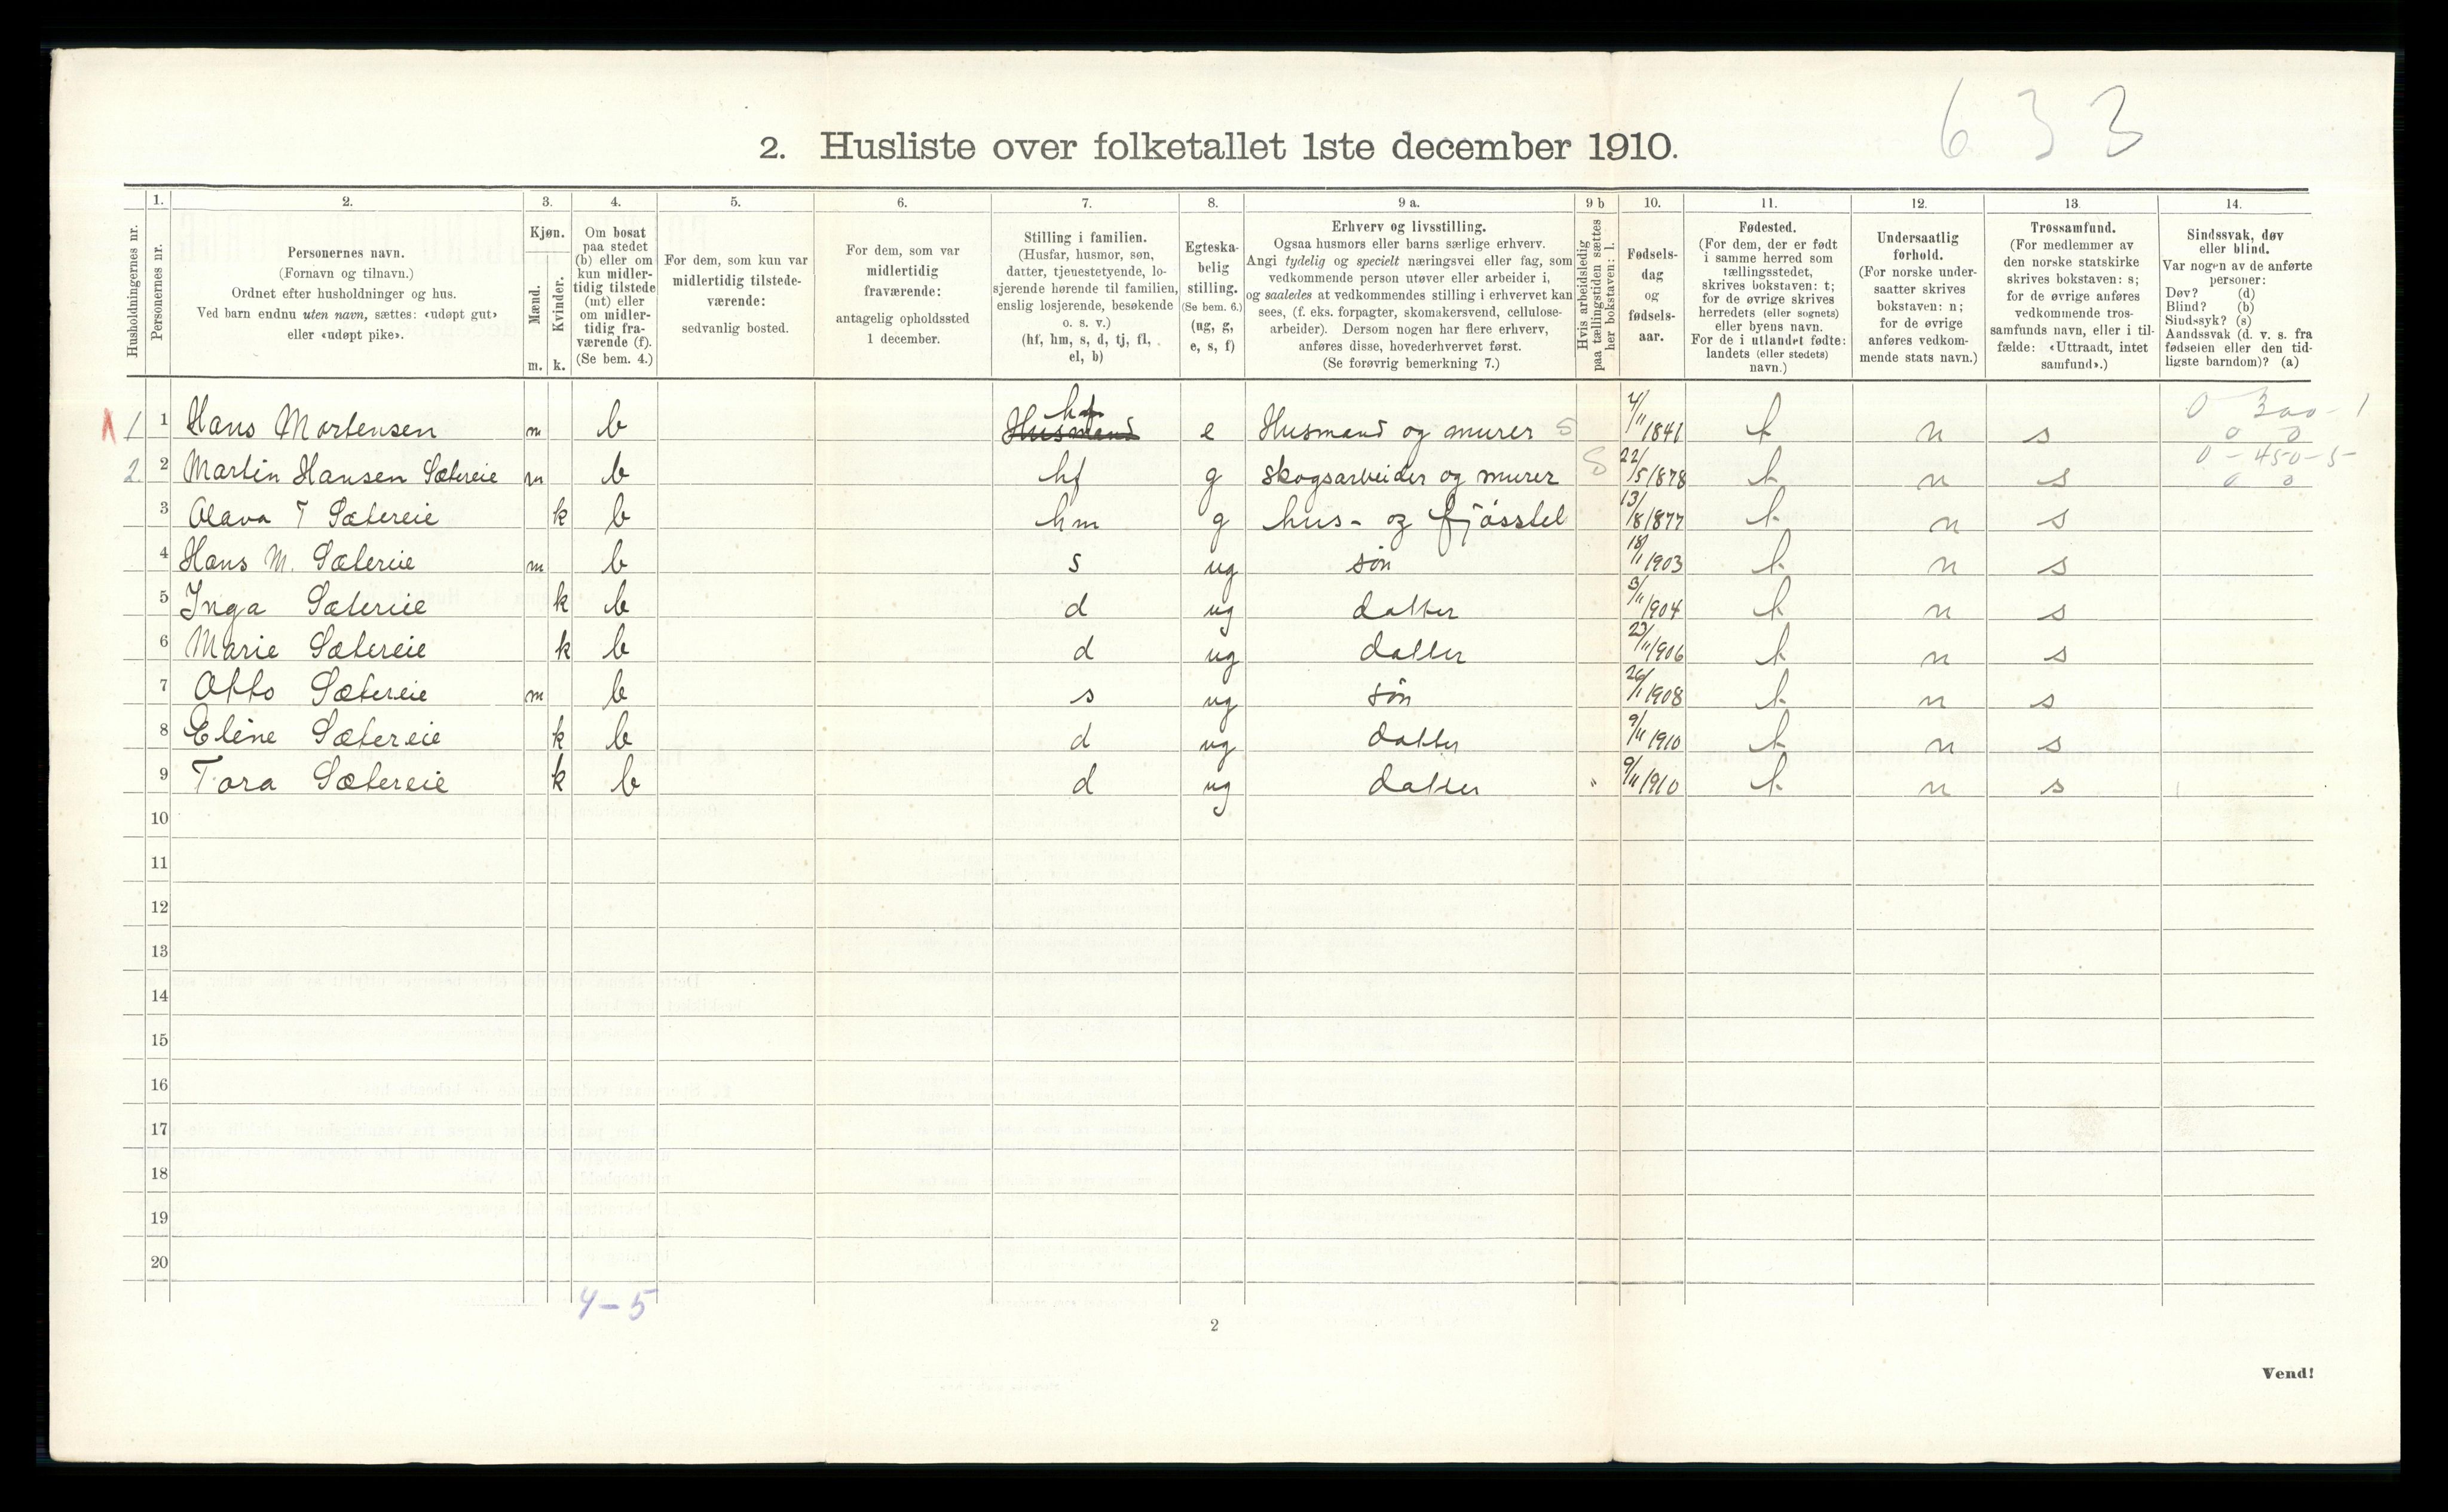 633
2. Husliste over folketallet 1ste december 1910.
Husholdningernes nr.
1.
Personernes nr.
2.
Personernes navn.
(Fornavn og tilnavn.)
Ordnet efter husholdninger og hus.
Ved barn endnu uten navn, sættes: «udøpt gut»
eller «udøpt pike».
3.
Kjøn.
Mænd.
Kvinder.
m. k.
4.
Om bosat
paa stedet
(b) eller om
kun midler-
tidig tilstede
(mt) eller
om midler-
tidig fra-
værende (f).
(Se bem. 4.)
5.
For dem, som kun var
midlertidig tilstede-
værende:
sedvanlig bosted.
6.
For dem, som var
midlertidig
fraværende:
antagelig opholdssted
1 december.
7.
Stilling i familien.
(Husfar, husmor, søn,
datter, tjenestetyende, lo-
sjerende hørende til familien,
enslig losjerende, besøkende
o. s. v.)
(hf, hm, s, d, tj, fl,
el, b)
8.
Egteska-
belig
stilling.
(Se bem. 6.)
(ug, g,
e, s, f)
9 a.
Erhverv og livsstilling.
Ogsaa husmors eller barns særlige erhverv.
Angi tydelig og specielt næringsvei eller fag, som
vedkommende person utøver eller arbeider i,
og saaledes at vedkommendes stilling i erhvervet kan
sees, (f. eks. forpagter, skomakersvend, cellulose-
arbeider). Dersom nogen har flere erhverv,
anføres disse, hovederhvervet først.
(Se forøvrig bemerkning 7.)
9 b
Hvis arbeidsledig
paa tællingstiden sættes
her bokstaven: l.
10.
Fødsels-
dag
og
fødsels-
aar.
11.
Fødested.
(For dem, der er født
i samme herred som
tællingsstedet,
skrives bokstaven: t;
for de øvrige skrives
herredets (eller sognets)
eller byens navn.
For de i utlandet fødte:
landets (eller stedets)
navn.)
12.
Undersaatlig
forhold.
(For norske under-
saatter skrives
bokstaven: n;
for de øvrige
anføres vedkom-
mende stats navn.)
13.
Trossamfund.
(For medlemmer av
den norske statskirke
skrives bokstaven: s;
for de øvrige anføres
vedkommende tros-
samfunds navn, eller i til-
fælde: «Uttraadt, intet
samfund».)
14.
Sindssvak, døv
eller blind.
Var nogen av de anførte
personer:
Døv? (d)
Blind? (b)
Sindssyk? (s)
Aandssvak (d. v. s. fra
fødselen eller den tid-
ligste barndom)? (a)
1 1 Hans Mortensen m b Husmand hf e Husmand og murer S 4/11 1841 t n s 0 300-1 0 0
2 2 Martin Hansen Sætereie m b hf g skogsarbeider og murer S 22/5 1878 t n s 0-450-5 0 0
3 Olava T Sætereie k b hm g hus- og fjösstel 13/8 1877 t n s
4 Hans M. Sætereie m b s ug sön 18/1 1903 t n s
5 Inga Sætereie k b d ug datter 3/11 1904 t n s
6 Marie Sætereie k b d ug datter 23/11 1906 t n s
7 Otto Sætereie m b s ug sön 26/1 1908 t n s
8 Eline Sætereie k b d ug datter 9/11 1910 t n s
9 Tora Sætereie k b d ug datter " 9/11 1910 t n s
10
11
12
13
14
15
16
17
18
19
20
4-5
2
Vend!